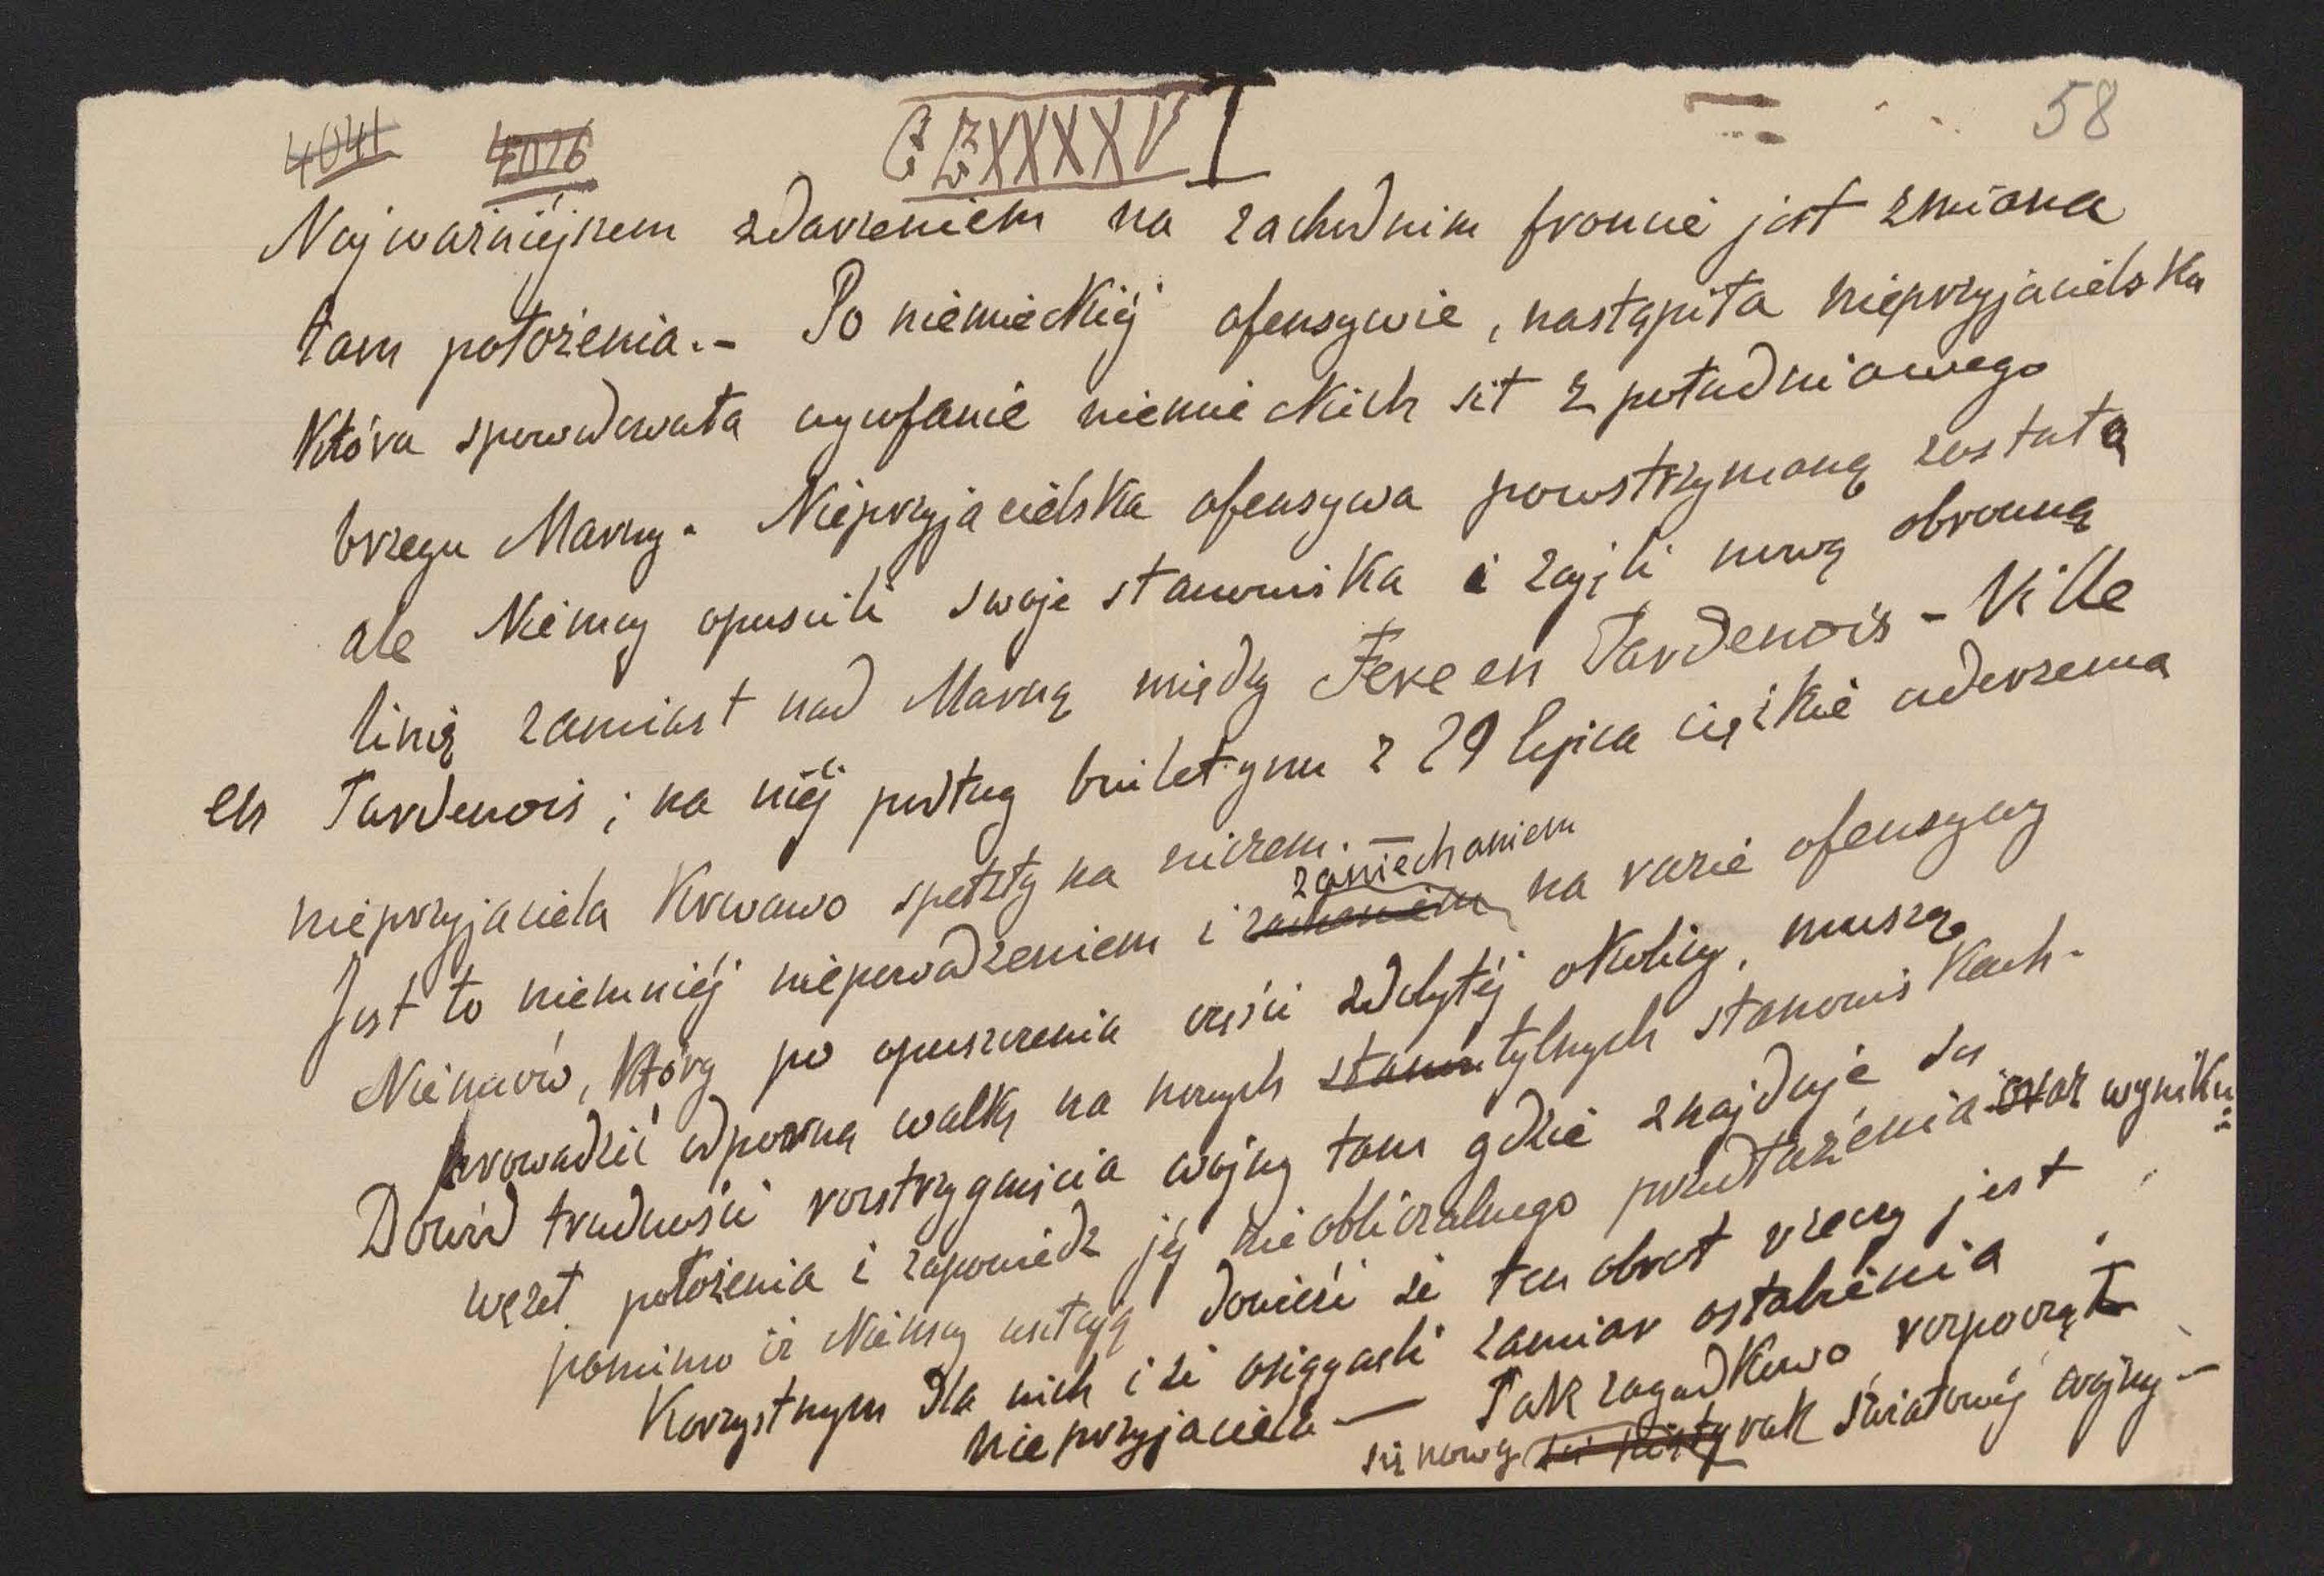 4041 4026 CCXXXXVI 58
Najważniéjszem zdarzeniem na zachodnim froncie jest zmiana
tam położenia.- Po niemieckiéj ofensywie, nastąpiła nieprzyjacielska
która spowodowała wycofanie niemieckich sił z południowego
brzegu Marny. Nieprzyjacielska ofensywa powstrzymaną została
ale Niemcy opuscili swoje stanowiska i zajęli nową obronną
linię zamiast nad Marną między Fere en Tardenois - Ville
en Tardenois; na niéj podług buletynu z 29 lipca ciężkie uderzenia
nieprzyjaciela krwawo spełzły na niczem.
zaniechaniem
Jest to niemniéj niepowodzeniem i na razie ofensywy
Niemców, którzy po opuszczenia części zdobytéj okolicy, muszą
prowadzić odporną walkę na nowych tylnych stanowiskach.
Dowód trudności rozstrzygnięcia wojny tam gdzie znajduje się
węzeł położenia i zapowiedz jéj nieobliczalnego przedłużenia oraz wyniku
pomimo iż Niemcy usiłują dowieść że ten obrot rzeczy jest
korzystnym dla nich i że osiągneli zamiar osłabienia
nieprzyjaciela — Tak zagadkowo rozpoczął
się nowy rok światowéj wojny -